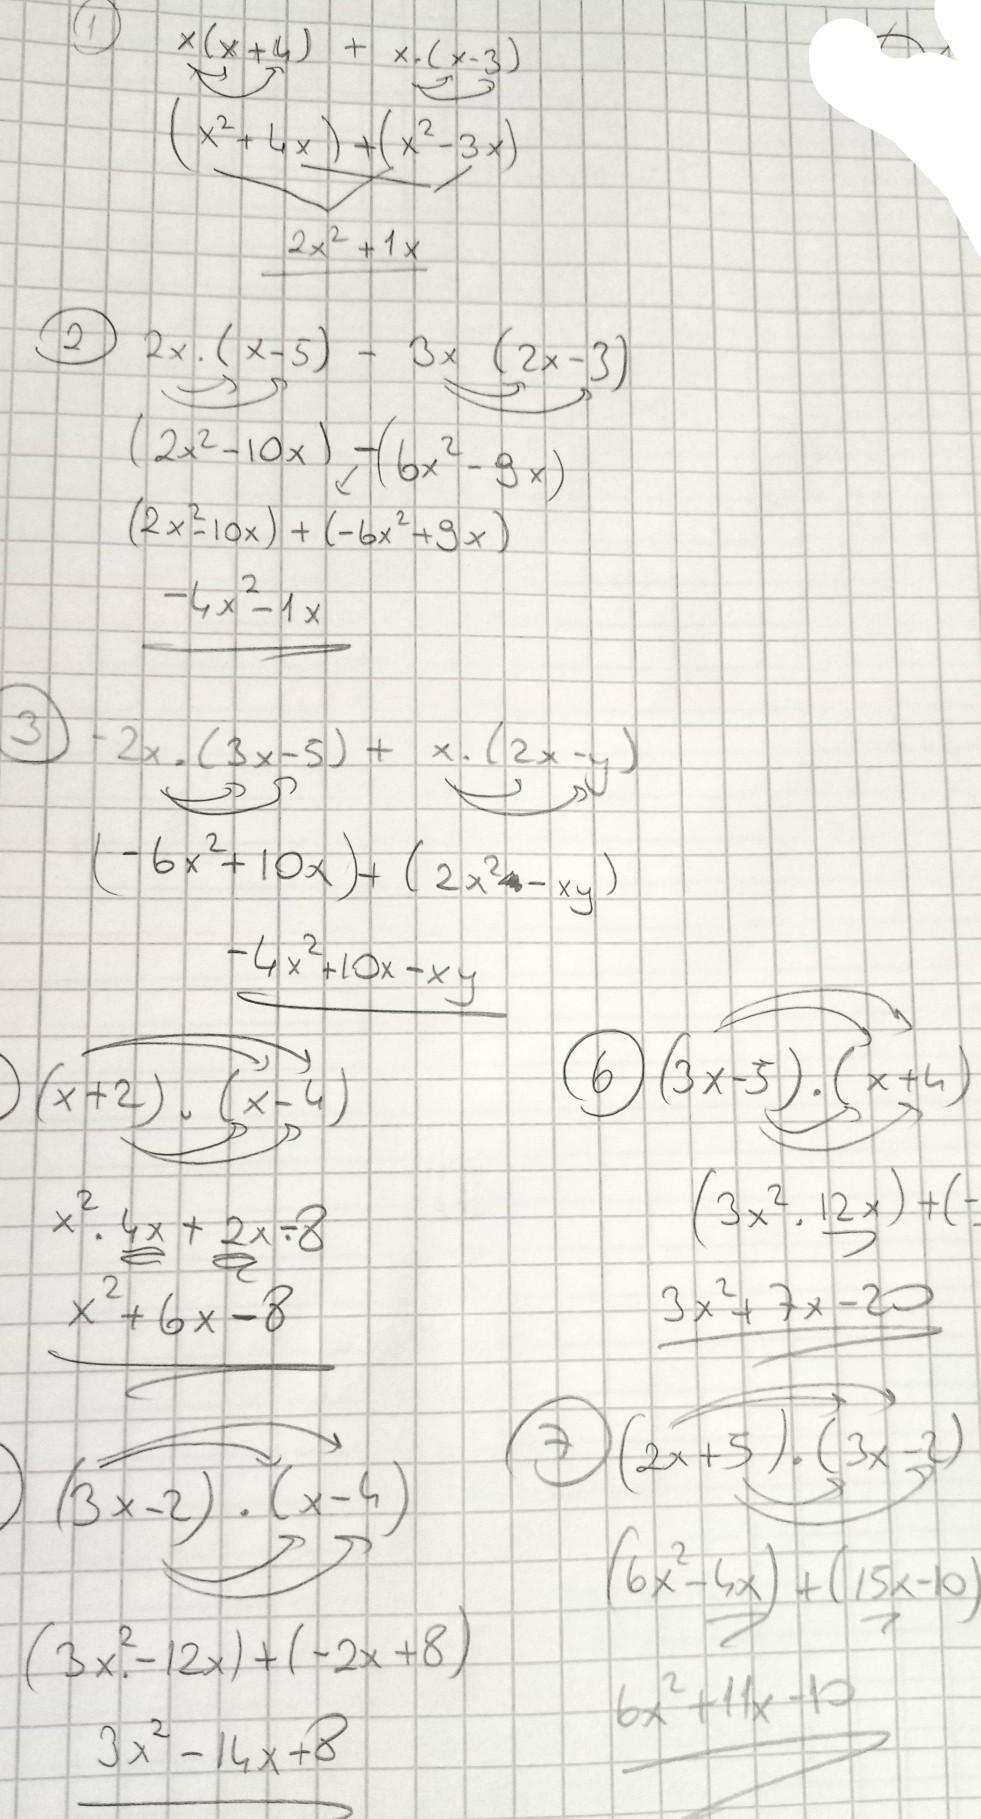 1
x(x+4) + x.(x-3)
(x²+4x)+(x²-3x)
2x²+1x
2 2x.(x-5) - 3x (2x-3)
(2x²-10x) -(6x²-9x)
(2x²-10x)+(-6x²+9x)
-4x²-1x
3 -2x.(3x-5)+ x.(2x-y)
(-6x²+10x)+(2x²-xy)
-4x²+10x-xy
(x+2).(x-4)
x².4x+2x-8
x²+6x-8
(3x-2).(x-4)
(3x²-12x)+(-2x+8)
3x²-14x+8
6 (3x-5).(x+4)
(3x².12x)+(-
3x²+7x-20
7 (2x+5).(3x-2)
(6x²-4x)+(15x-10)
6x²+11x-10